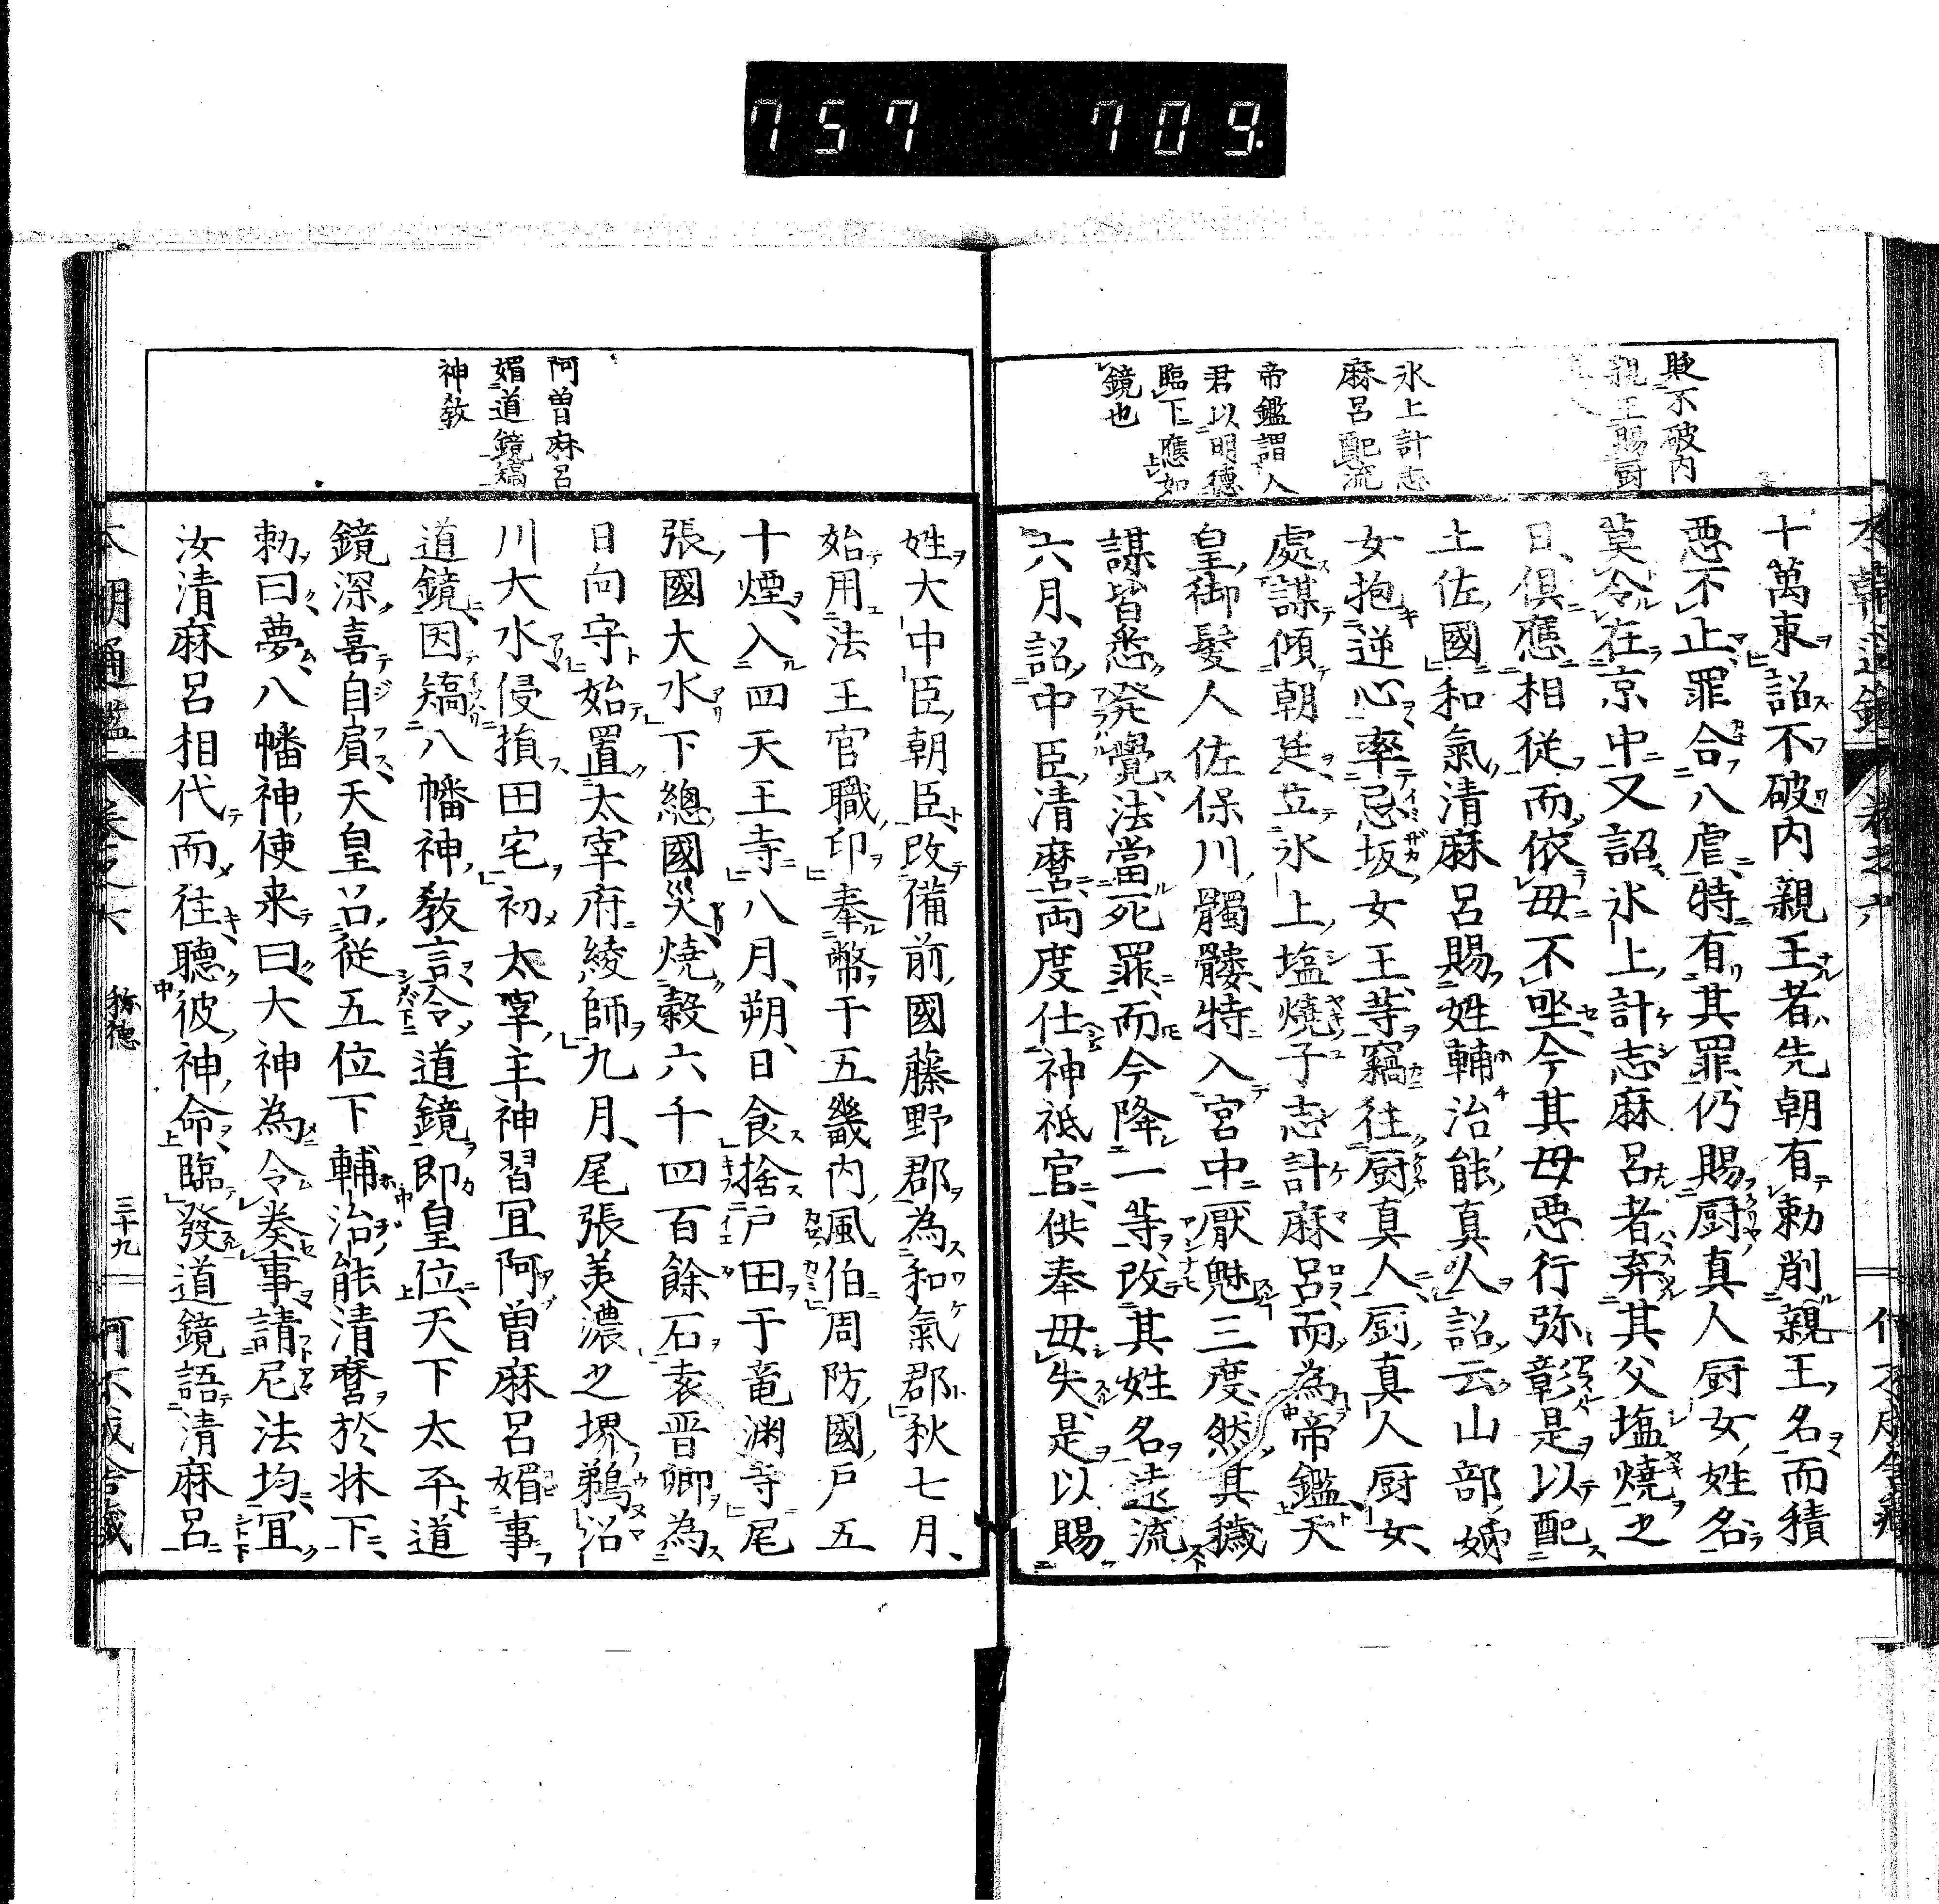 757 709.
貶不破内
親王賜厨
氷上計志
麻呂配流
帝鑑謂人
君以明徳
臨下應如
鏡也
十萬束詔不破内親王者先朝有勅削親王名而積
惡不止罪合八虐特有其罪仍賜厨真人厨女姓名
莫令在京中又詔氷上計志麻呂者弃其父塩燒之
日倶應相從而依毋不坐今其毋悪行弥彰是以配
土佐國和氣清麻呂賜姓輔治能真人詔云山部姉
女抱逆心率忌坂女王等竊往厨真人厨真人厨女
處謀傾朝廷立氷上塩燒子志計麻呂而為帝鑑天
皇御髪人佐保川髑髏特入宮中厭魅三度然其穢
謀皆悉発覺法當死罪而今降一等改其姓名遠流
六月詔中臣清麿両度仕神祇官供奉毋失是以賜
姓大中臣朝臣改備前國藤野郡為和氣郡秋七月
始用法王官職印奉幣于五畿内風伯周防國戸五
十煙入四天王寺八月朔日食捨戸田于竜渕寺尾
張國大水下總國災燒穀六千四百餘石袁晋卿為
日向守始置太宰府綾師九月尾張美濃之堺鵜沼
川大水侵損田宅初太宰主神習冝阿曽麻呂媚事
道鏡因矯八幡神教言令道鏡即皇位天下太平道
鏡深喜自負天皇召從五位下輔治能清麿於牀下
勅曰夢八幡神使来曰大神為令奏事請尼法均冝
汝清麻呂相代而往聽彼神命臨發道鏡語清麻呂
阿曽麻呂
媚道鏡矯
神教
本朝通鑑
卷之六
称徳
三十九